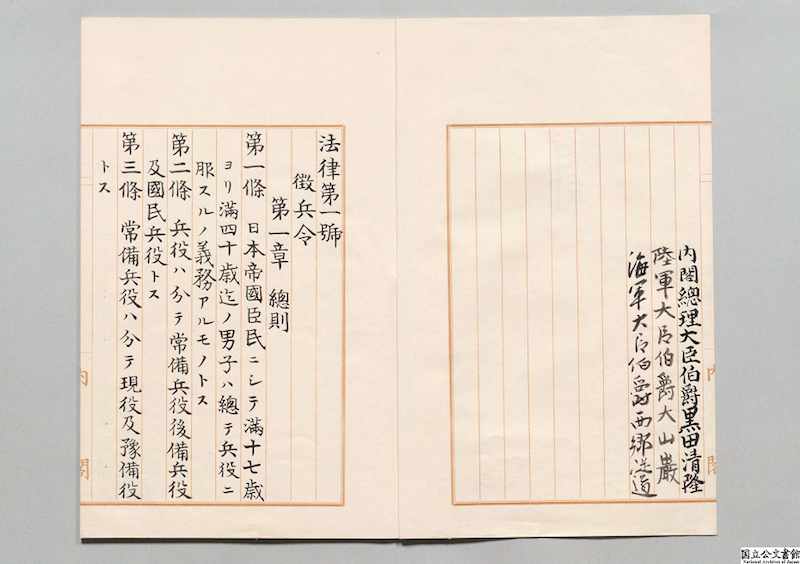 内閣總理大臣伯爵黒田清隆
陸軍大臣伯爵大山巖
海軍大臣伯爵西郷從道
法律第一號
徴兵令
第一章 總則
第一條 日本帝國臣民ニシテ滿十七歳
ヨリ滿四十歳迄ノ男子ハ總テ兵役ニ
服スルノ義務アルモノトス
第二條 兵役ハ分テ常備兵役後備兵役
及國民兵役トス
第三條 常備兵役ハ分テ現役及豫備役
トス
内閣
内閣
国立公文書館
National Archives of Japan